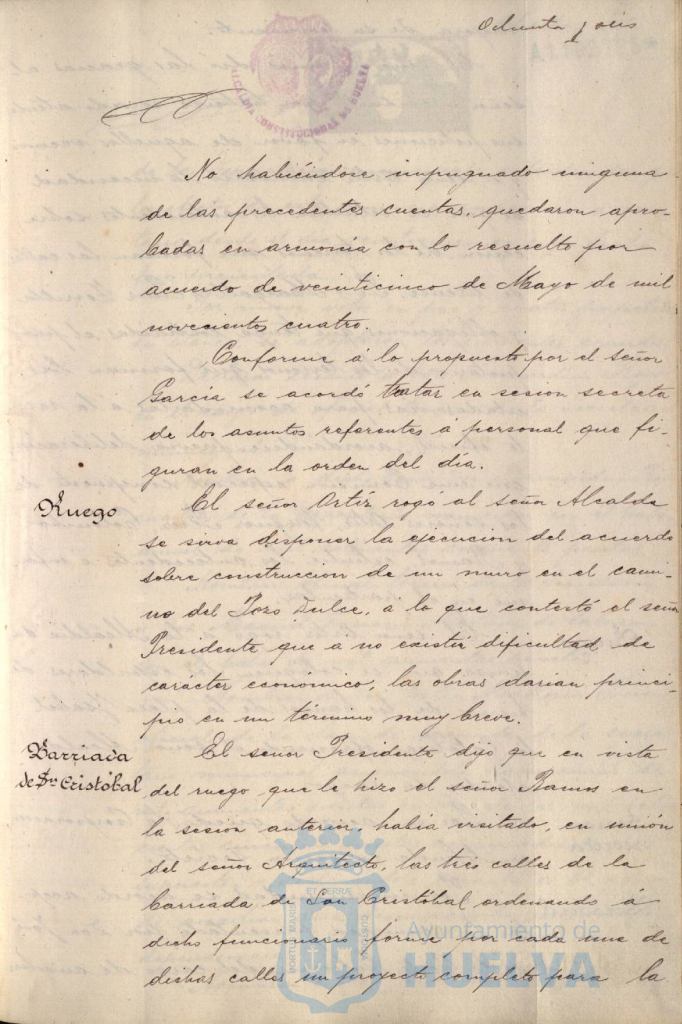 Ochenta y seis
ALCALDIA CONSTITUCIONAL DE HUELVA
No habiéndose impugnado ninguna
de las precedentes cuentas, quedaron apro-
badas en armonía con lo resuelto por
acuerdo de veinticinco de Mayo de mil
novecientos cuatro.
Conforme á lo propuesto por el señor
García se acordó tratar en sesion secreta
de los asuntos referentes á personal que fi-
guran en la orden del día.
Ruego
El señor Ortíz rogó al señor Alcalde
se sirva disponer la ejecucion del acuerdo
sobre construccion de un muro en el cami-
no del Pozo Dulce, á lo que contestó el señor
Presidente que á no existir dificultad de
carácter económico, las obras darian princi-
pio en un término muy breve.
Barriada
de Sn Cristóbal
El señor Presidente dijo que en vista
del ruego que le hizo el señor Ramos en
la sesion anterior, había visitado, en unión
del señor Arquitecto, las tres calles de la
barriada de San Cristóbal ordenando á
dicho funcionario forme por cada una de
dichas calles un proyecto completo para la
PORTUS MARIS ET TERRÆ CUSTODIA
Ayuntamiento de
HUELVA